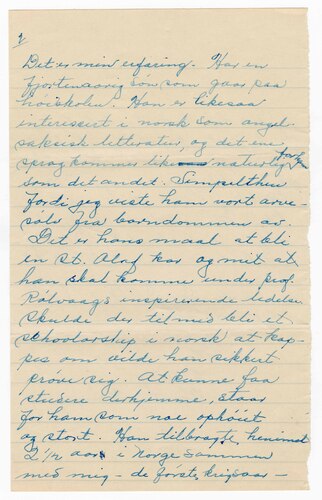 2/
Det er min erfaring. Har en
fjortenaarig søn som gaar paa
høiskolen. Han er likesaa
interessert i norsk som angel-
saksisk litteratur, og det ene
sprog kommer like naturlig for ham
som det andet. Simpelthen
fordi jeg viste ham vort arve-
sölv fra barndommen av.
Det er hans maal at bli
en St. Olaf kar og mit at
han skal komme under prof.
Rölvaags inspirerende ledelse.
Skulde der tilmed bli et
schoolarship i norsk at kap-
pes om vilde han sikkert
pröve sig. At kunne faa
studere derhjemme, staar
for ham som noe ophöiet
og stort. Han tilbragte henimot
2 1/2 aar i Norge sammen
med mig - de förste krigsaar -